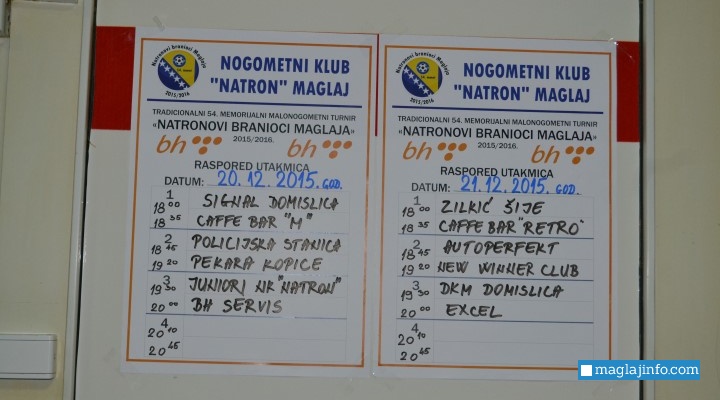 NOGOMETNI KLUB
"NATRON" MAGLAJ
TRADICIONALNI 54. MEMORIJALNI MALONOGOMETNI TURNIR
«NATRONOVI BRANIOCI MAGLAJA»
2015/2016.
bh bh
RASPORED UTAKMICA
DATUM: 20.12.2015. GOD.
1
18 00 SIGNAL DOMISLICA
18 35 CAFFE BAR "M"
2
18 45 POLICIJSKA STANICA
19 20 PEKARA KOPICE
3
19 30 JUNIORI NK "NATRON"
20 00 BH SERVIS
4
20 10
20 45
Natronovi branioci Maglaja
2015/2016
NOGOMETNI KLUB
"NATRON" MAGLAJ
TRADICIONALNI 54. MEMORIJALNI MALONOGOMETNI TURNIR
«NATRONOVI BRANIOCI MAGLAJA»
2015/2016.
bh bh
RASPORED UTAKMICA
DATUM: 21.12.2015. GOD.
1
18 00 ZILKIĆ ŠIJE
18 35 CAFFE BAR "RETRO"
2
18 45 AUTOPERFEKT
19 20 NEW WINNER CLUB
3
19 30 DKM DOMISLICA
20 00 EXCEL
4
20 10
20 45
Natronovi branioci Maglaja
2015/2016
maglajinfo.com